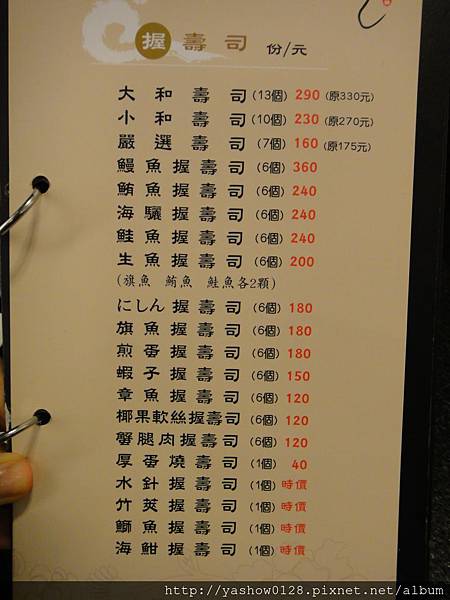 握壽司 份/元
大和壽司 (13個) 290 (原330元)
小和壽司 (10個) 230 (原270元)
嚴選壽司 (7個) 160 (原175元)
鰻魚握壽司 (6個) 360
鮪魚握壽司 (6個) 240
海鱺握壽司 (6個) 240
鮭魚握壽司 (6個) 240
生魚握壽司 (6個) 200
(旗魚 鮪魚 鮭魚各2顆)
にしん握壽司 (6個) 180
旗魚握壽司 (6個) 180
煎蛋握壽司 (6個) 180
蝦子握壽司 (6個) 150
章魚握壽司 (6個) 120
椰果軟絲握壽司 (6個) 120
蟹腿肉握壽司 (6個) 120
厚蛋燒壽司 (1個) 40
水針握壽司 (1個) 時價
竹莢握壽司 (1個) 時價
鰤魚握壽司 (1個) 時價
海魽握壽司 (1個) 時價
http://yashow0128.pixnet.net/album